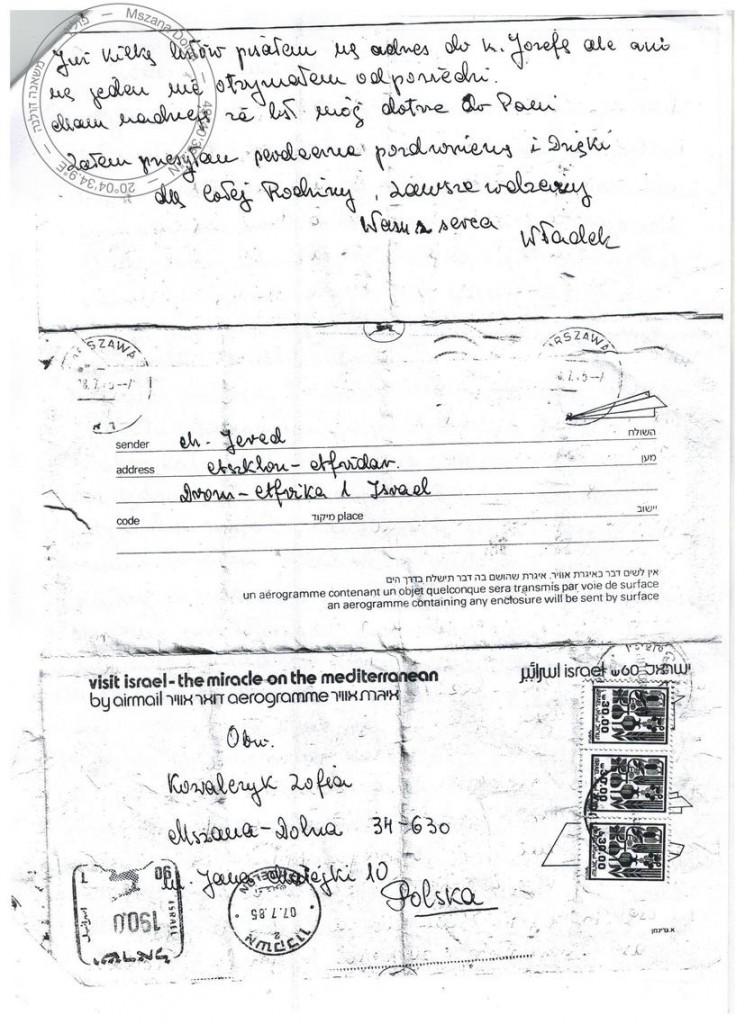 Już kilka listów pisałem na adres do k. Józefa ale ani
na jeden nie otrzymałem odpowiedzi.
mam nadzieję że list mój dotrze do Pani
Zatem przesyłam serdeczne pozdrowienia i Dzięki
dla całej Rodziny, zawsze wdzięczny
Wam z serca
Władek
Mszana Dolna
משאנה דולנה
20°04'34.9"E
WARSZAWA
WARSZAWA
sender
השולח
address
מען
Drom-Afrika 1 Israel
code
מיקוד place
יישוב
אין לשים דבר באיגרת אוויר. איגרת שהושם בה דבר תישלח בדרך הים
un aérogramme contenant un objet quelconque sera transmis par voie de surface
an aerogramme containing any enclosure will be sent by surface
visit israel-the miracle on the mediterranean
by airmail דואר אוויר aerogramme איגרת אוויר
ישראל 60ש israel اسرائيل
30.00
30.00
30.00
Obw.
Kowalczyk Zofia
Mszana-Dolna 34-630
ul. Jana Matejki 10
Polska
ISRAEL
190.0
07.7.85
א.גרינמן